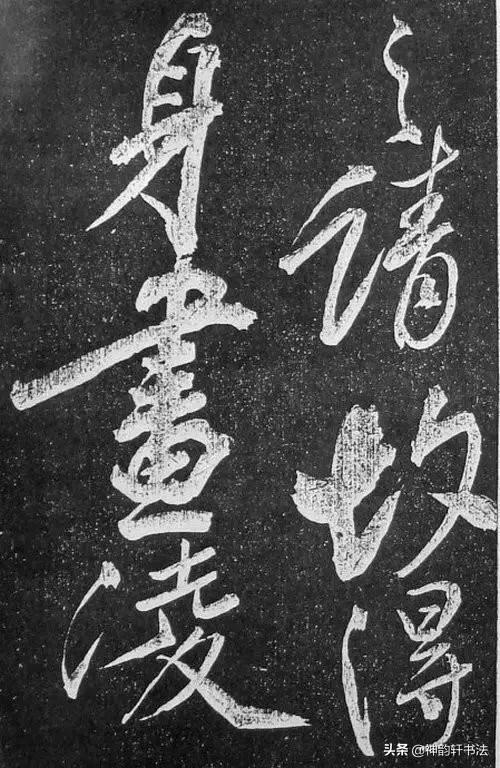 之請故得
身畫凌
头条 @神韵轩书法